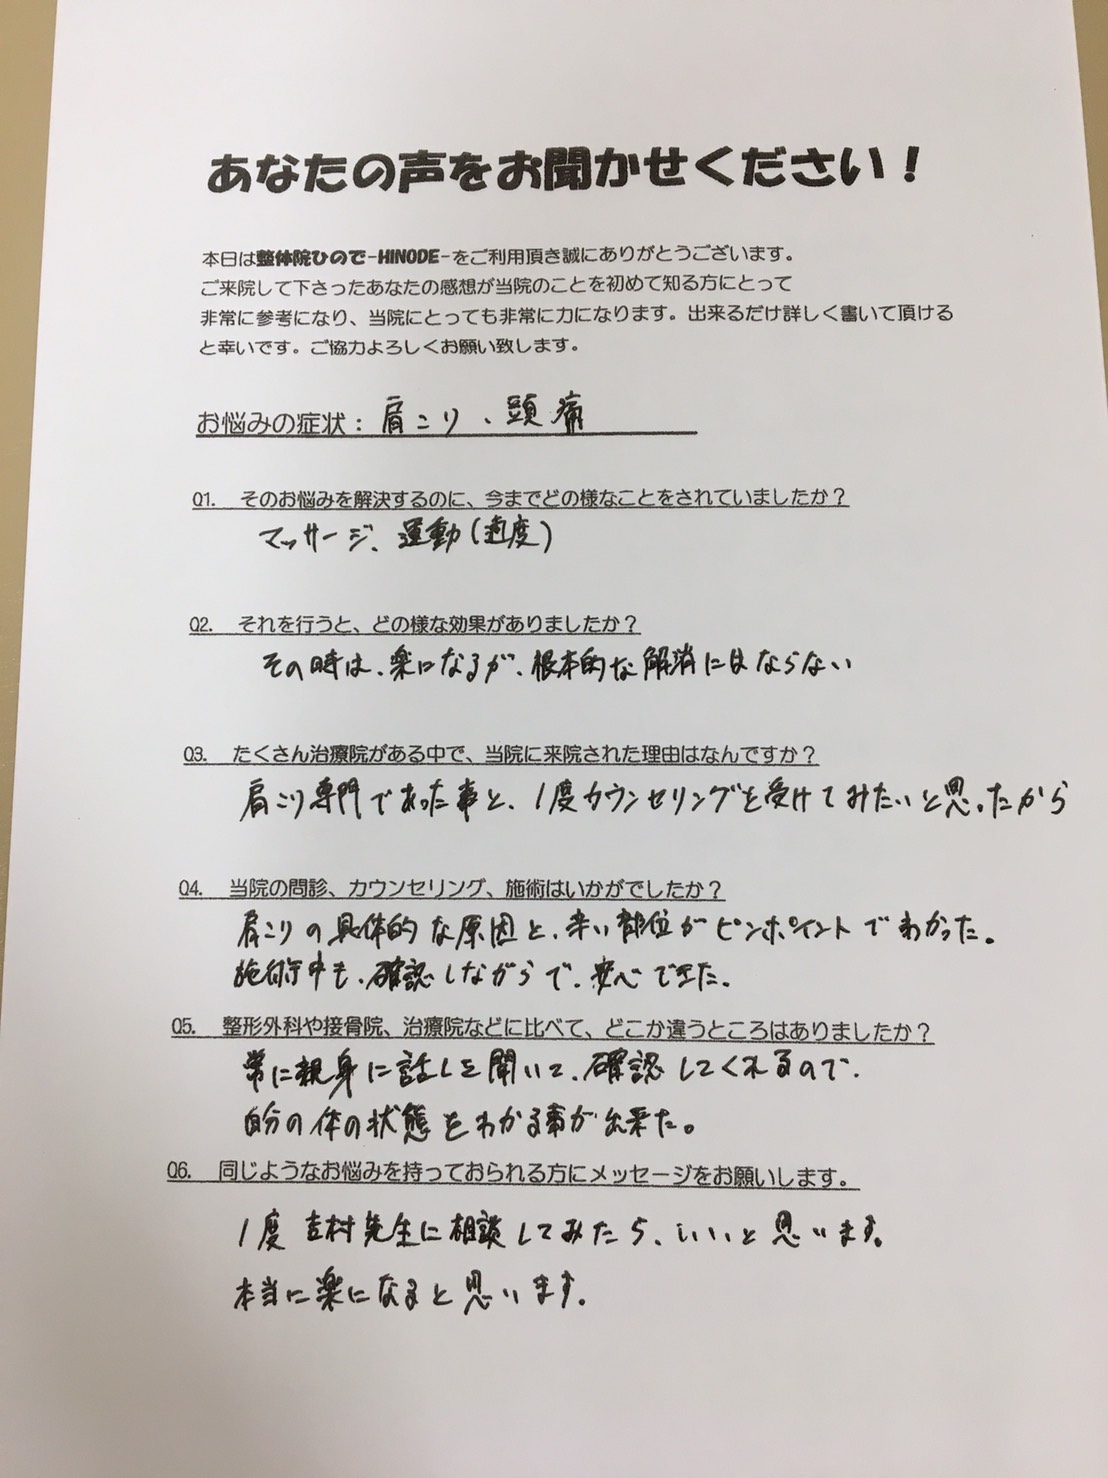 あなたの声をお聞かせください！
本日は整体院ひので-HINODE-をご利用頂き誠にありがとうございます。
ご来院して下さったあなたの感想が当院のことを初めて知る方にとって
非常に参考になり、当院にとっても非常に力になります。出来るだけ詳しく書いて頂ける
と幸いです。ご協力よろしくお願い致します。
お悩みの症状：肩こり、頭痛
Q1. そのお悩みを解決するのに、今までどの様なことをされていましたか？
マッサージ、運動(適度)
Q2. それを行うと、どの様な効果がありましたか？
その時は、楽になるが、根本的な解消にはならない
Q3. たくさん治療院がある中で、当院に来院された理由はなんですか？
肩こり専門であった事と、1度カウンセリングを受けてみたいと思ったから
Q4. 当院の問診、カウンセリング、施術はいかがでしたか？
肩こりの具体的な原因と、辛い部位がピンポイントでわかった。
施術中も、確認しながらで、安心できた。
Q5. 整形外科や接骨院、治療院などに比べて、どこか違うところはありましたか？
常に親身に話しを聞いて、確認してくれるので、
自分の体の状態をわかる事が出来た。
Q6. 同じようなお悩みを持っておられる方にメッセージをお願いします。
1度吉村先生に相談してみたら、いいと思います。
本当に楽になると思います。